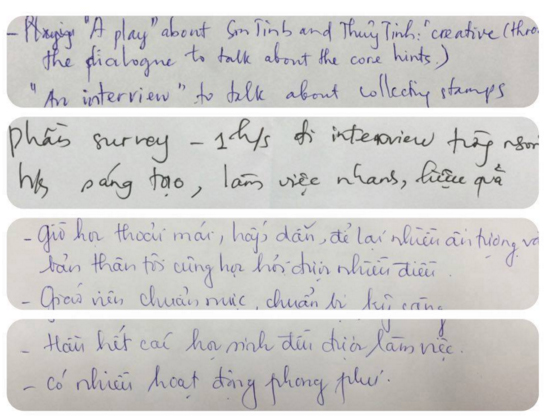 - Playing "A play" about Sơn Tinh and Thuỷ Tinh: creative (thro
the dialogue to talk about the core hints.)
"An interview" to talk about collecting stamps
phần survey - 1 h/s đi interview từng người
h/s sáng tạo, làm việc nhanh, hiệu quả
- Giờ học thoải mái, hấp dẫn, để lại nhiều ấn tượng và
bản thân tôi cũng học hỏi được nhiều điều.
- Giáo viên chuẩn mực, chuẩn bị kỹ càng
- Hầu hết các học sinh đều được làm việc.
- Có nhiều hoạt động phong phú.